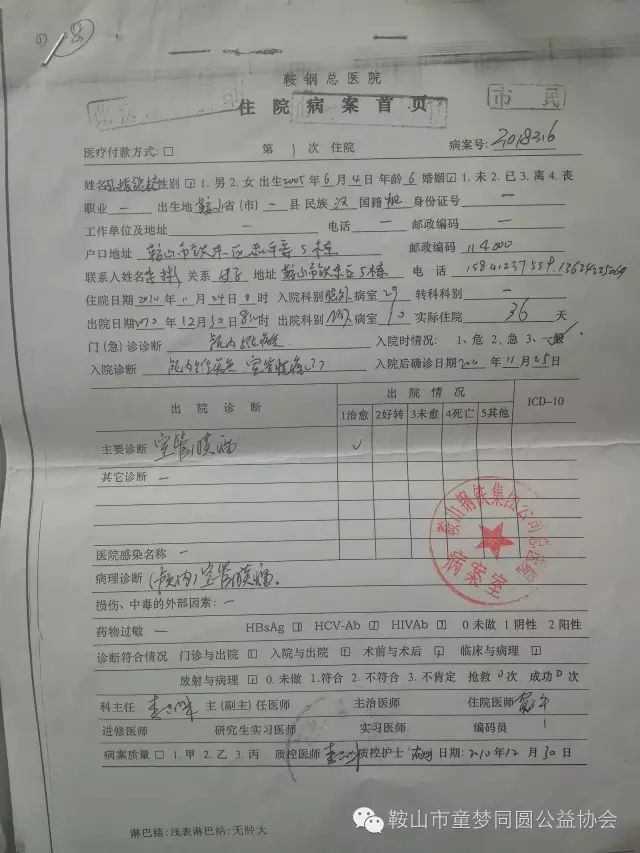 鞍钢总医院
住院病案首页
市民
医疗付款方式:□ 第 1 次 住院 病案号: 2018316
姓名 性别 1.男 2.女 出生2005年6月4日 年龄6 婚姻 1.未 2.已 3.离 4.丧
职业 一 出生地 鞍山省(市) 一 县 民族 汉 国籍 身份证号 一
工作单位及地址 一 电话 一 邮政编码 一
户口地址 鞍山市铁东区 5栋 邮政编码 114000
联系人姓名 李彬 关系 母子 地址 鞍山市铁东区5栋 电话 15841237559
住院日期2010年11月24日8时 入院科别 脑外 病室29 转科科别 一
出院日期2010年12月30日8时 出院科别 病室 实际住院 36 天
门(急)诊诊断 颅内 入院时情况: 1、危 2、急 3、一般
入院诊断 颅内 室管膜瘤?? 入院后确诊日期 年11月25日
出院诊断 出院情况 ICD-10
1治愈 2好转 3未愈 4死亡 5其他
主要诊断 室管膜瘤 ✓
其它诊断 一
鞍山钢铁集团公司总医院
病案室
医院感染名称 一
病理诊断 (颅内)室管膜瘤。
损伤、中毒的外部因素: 一
药物过敏 一 HBsAg HCV-Ab HIVAb 0 未做 1 阴性 2 阳性
诊断符合情况 门诊与出院 入院与出院 术前与术后 临床与病理
放射与病理 0.未做 1.符合 2.不符合 3.不肯定 抢救0次 成功0次
科主任 主(副主)任医师 主治医师 住院医师
进修医师 研究生实习医师 实习医师 编码员 1
病案质量 □ 1.甲 2.乙 3.丙 质控医师 质控护士 日期:2010年12月30日
淋巴结:浅表淋巴结:无肿大
鞍山市童梦同圆公益协会